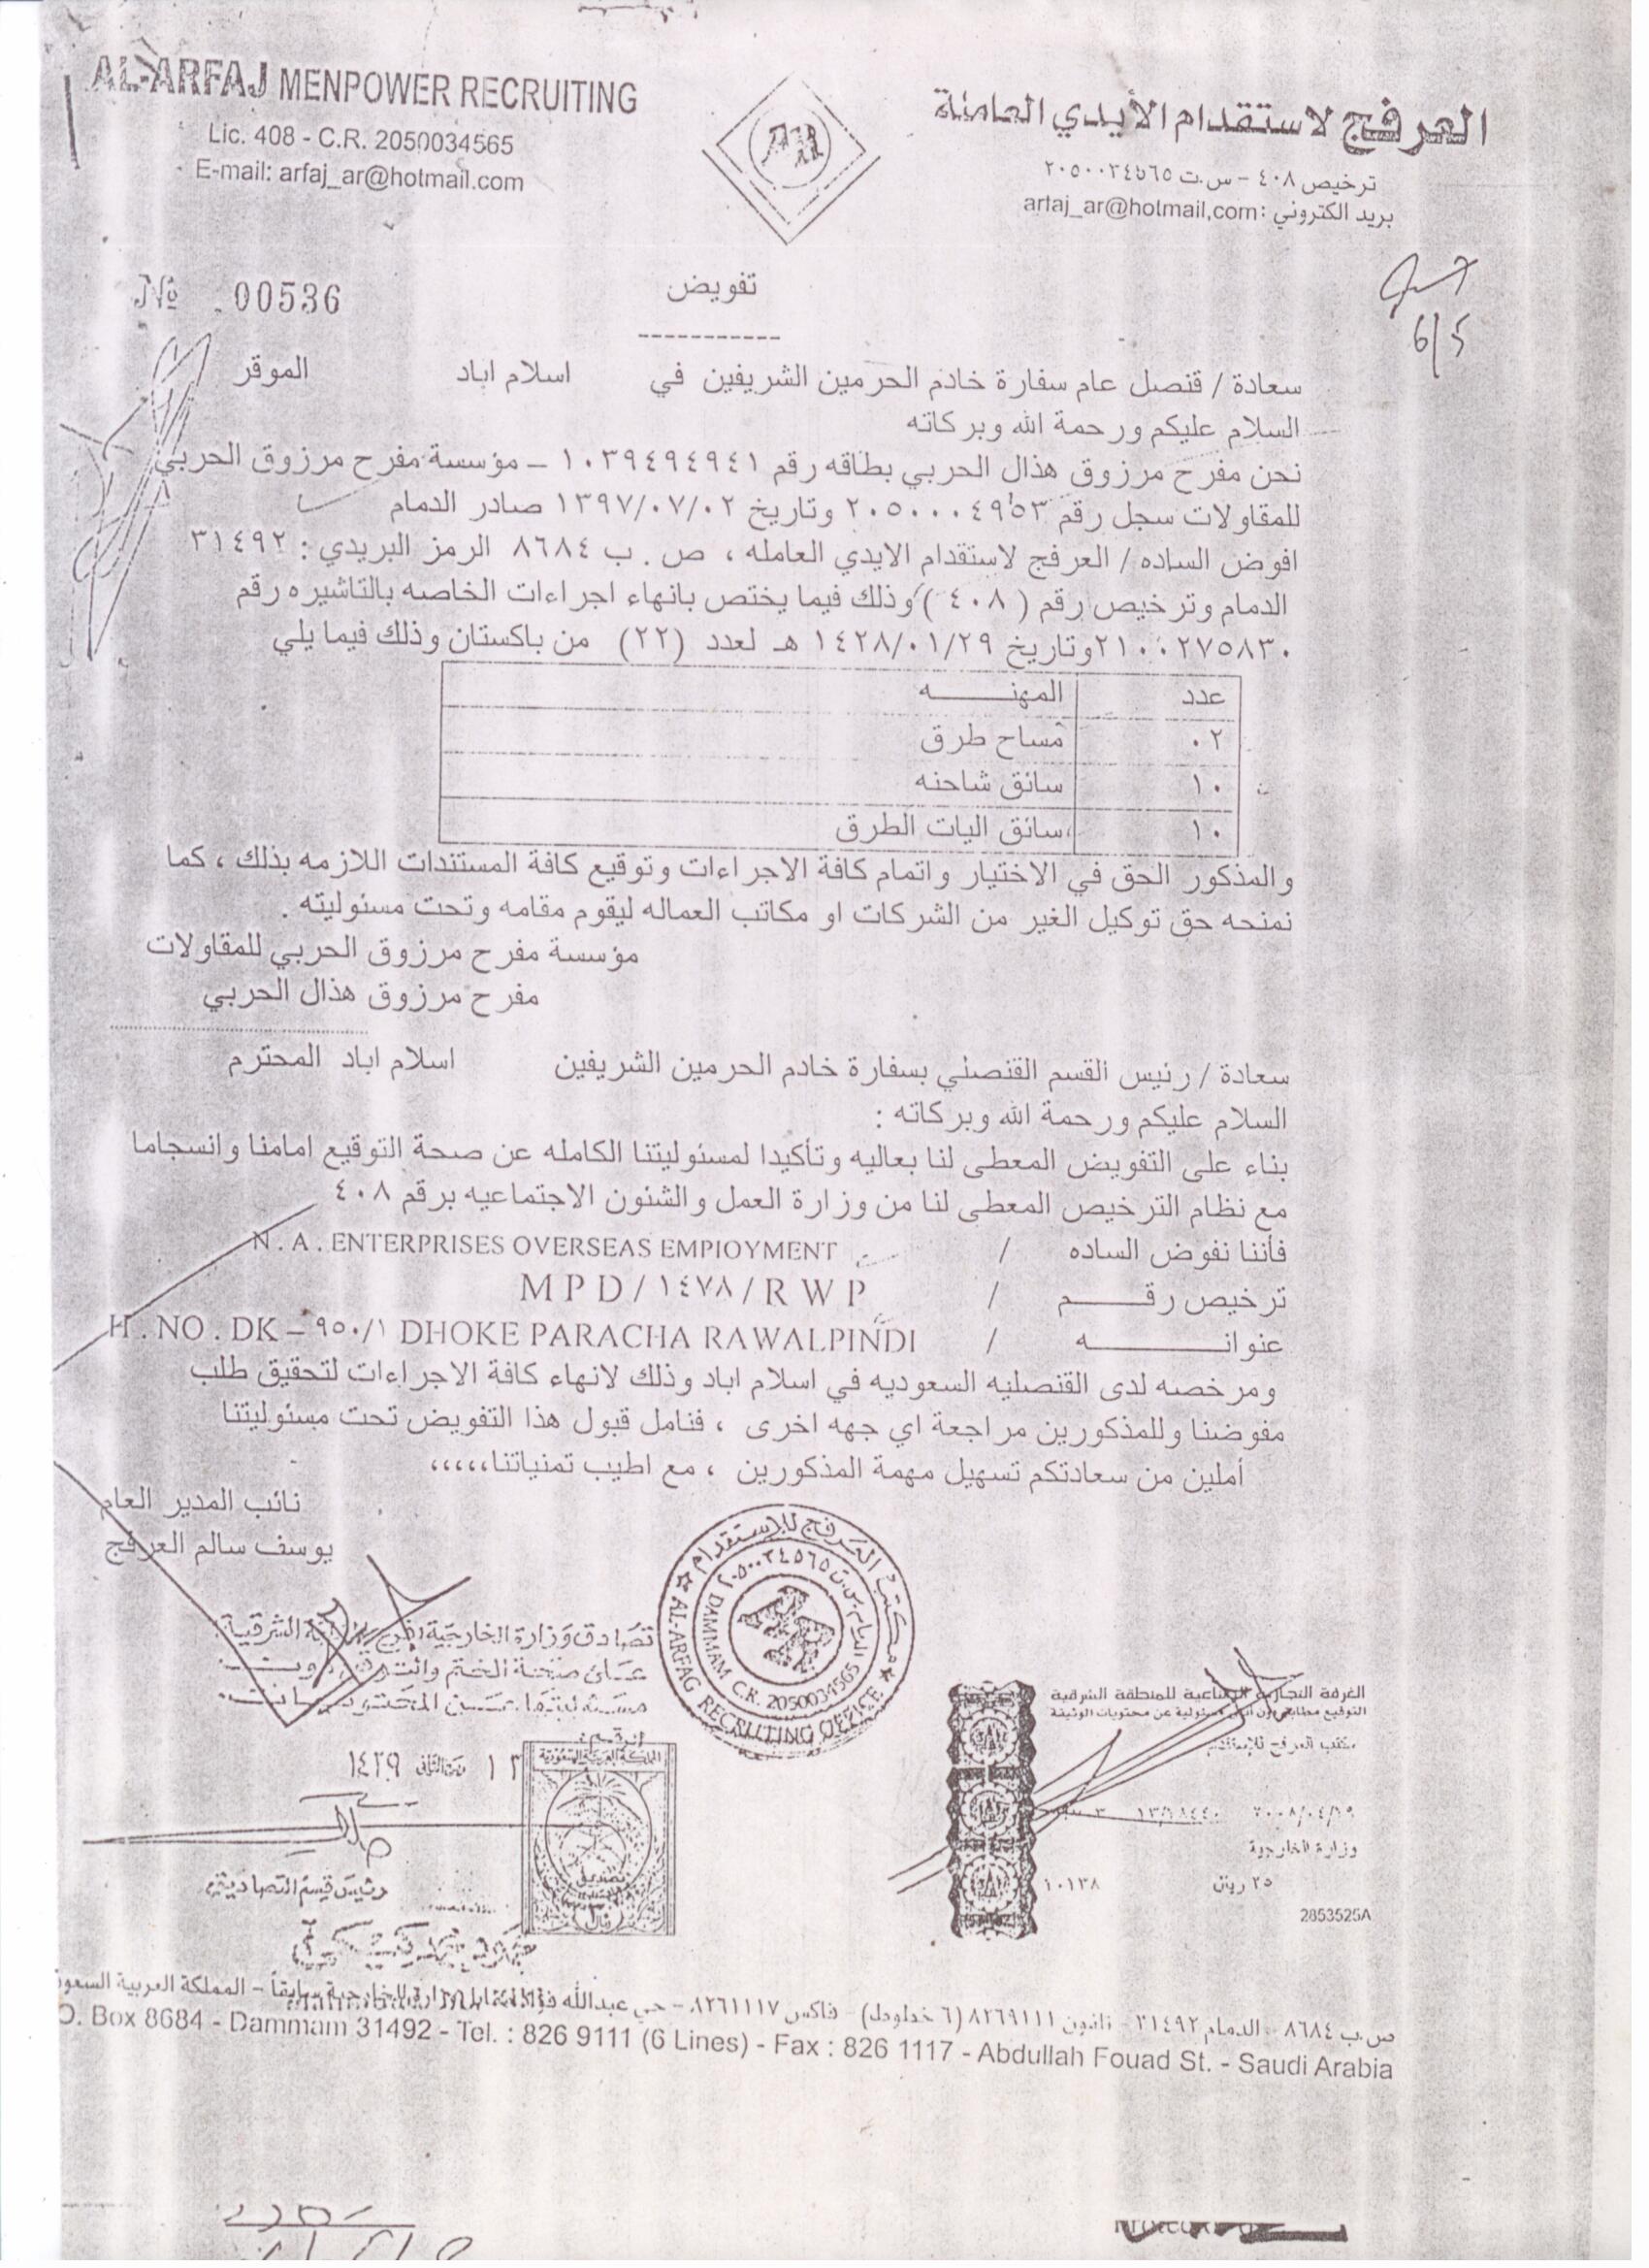 AL-ARFAJ MENPOWER RECRUITING
Lic. 408 - C.R. 2050034565
E-mail: arfaj_ar@hotmail.com
العرفج لاستقدام الأيدي العاملة
ترخيص ٤٠٨ - س.ت ٢٠٥٠٠٣٤٥٦٥
بريد الكتروني: arfaj_ar@hotmail.com
№ 00536
تفويض
سعادة / قنصل عام سفارة خادم الحرمين الشريفين في اسلام اباد الموقر
السلام عليكم ورحمة الله وبركاته
نحن مفرح مرزوق هذال الحربي بطاقه رقم ١٠٣٩٤٩٤٩٤١ – مؤسسة مفرح مرزوق الحربي
للمقاولات سجل رقم ٢٠٥٠٠٠٤٩٥٣ وتاريخ ١٣٩٧/٠٧/٠٢ صادر الدمام
افوض الساده / العرفج لاستقدام الايدي العامله ، ص . ب ٨٦٨٤ الرمز البريدي : ٣١٤٩٢
الدمام وترخيص رقم ( ٤٠٨ ) وذلك فيما يختص بانهاء اجراءات الخاصه بالتاشيره رقم
٢١٠٠٢٧٥٨٣٠ وتاريخ ١٤٢٨/٠١/٢٩ هـ لعدد (٢٢) من باكستان وذلك فيما يلي
عدد المهنــــــه
٠٢ مساح طرق
١٠ سائق شاحنه
١٠ سائق اليات الطرق
والمذكور الحق في الاختيار واتمام كافة الاجراءات وتوقيع كافة المستندات اللازمه بذلك ، كما
نمنحه حق توكيل الغير من الشركات او مكاتب العماله ليقوم مقامه وتحت مسئوليته .
مؤسسة مفرح مرزوق الحربي للمقاولات
مفرح مرزوق هذال الحربي
سعادة / رئيس القسم القنصلي بسفارة خادم الحرمين الشريفين اسلام اباد المحترم
السلام عليكم ورحمة الله وبركاته :
بناء على التفويض المعطى لنا بعاليه وتأكيدا لمسئوليتنا الكامله عن صحة التوقيع امامنا وانسجاما
مع نظام الترخيص المعطى لنا من وزارة العمل والشئون الاجتماعيه برقم ٤٠٨
فأننا نفوض الساده / N . A . ENTERPRISES OVERSEAS EMPIOYMENT
ترخيص رقــــــم / M P D / ١٤٧٨ / R W P
عنوانــــــــــه / H . NO . DK – ٩٥٠/١ DHOKE PARACHA RAWALPINDI
ومرخصه لدى القنصليه السعوديه في اسلام اباد وذلك لانهاء كافة الاجراءات لتحقيق طلب
مفوضنا وللمذكورين مراجعة اي جهه اخرى ، فنامل قبول هذا التفويض تحت مسئوليتنا
أملين من سعادتكم تسهيل مهمة المذكورين ، مع اطيب تمنياتنا،،،،،
نائب المدير العام
يوسف سالم العرفج
مكتب العرفج للإستقدام
الدمام س.ت ٢٠٥٠٠٣٤٥٦٥
DAMMAM C.R. 2050034565
AL-ARFAG RECRUITING OFFICE
المملكة العربية السعودية
رئيس قسم التصاديق
الغرفة التجارية الصناعية للمنطقة الشرقية
مكتب العرفج للإستقدام
٢٠٠٨/٠٤/١٩
وزارة الخارجية
٢٥ ريال ١٠١٣٨
2853525A
ص.ب ٨٦٨٤ - الدمام ٣١٤٩٢ - تلفون ٨٢٦٩١١١ (٦ خطوط) - فاكس ٨٢٦١١١٧ - حي عبدالله فؤاد مقابل وزارة الخارجية سابقاً - المملكة العربية السعود
O. Box 8684 - Dammam 31492 - Tel. : 826 9111 (6 Lines) - Fax : 826 1117 - Abdullah Fouad St. - Saudi Arabia